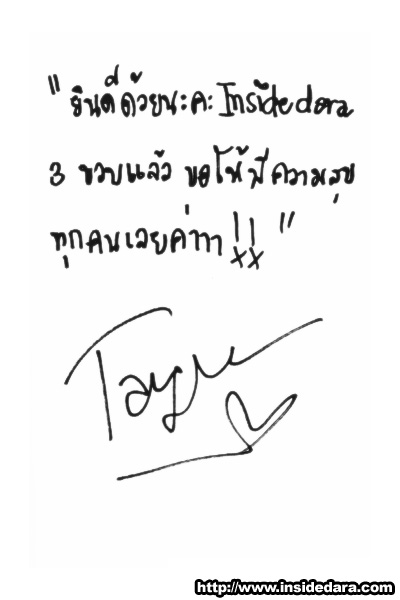 "ยินดีด้วยนะคะ Insidedara
3 ขวบแล้ว ขอให้มีความสุข
ทุกคนเลยค่าาา !!"
xx
http://www.insidedara.com